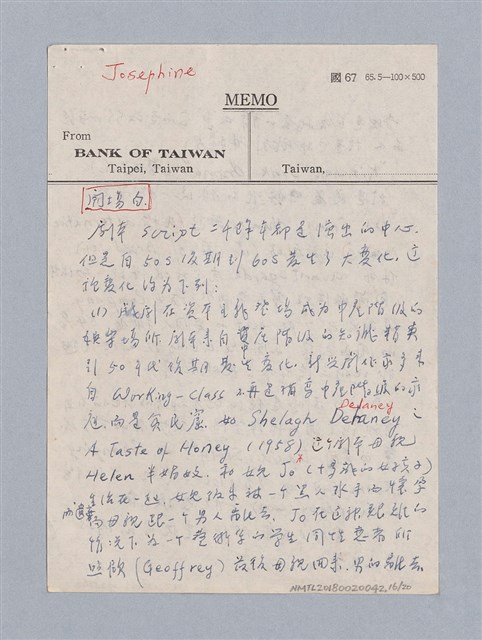 Josephine
國 67 65.5—100×500
MEMO
From
BANK OF TAIWAN
Taipei, Taiwan
Taiwan,
開場白
劇本 script 二千餘年都是演出的中心,
但是自50s後期到60s發生了大變化, 這
種變化約為下列:
(1) 戲劇在資本主義 登場成為中產階級的
娛樂場所 劇本亦自 中產階級的知識精英
到50年代後期發生變化. 新興劇作家多來
自 Working-class 不再是描寫中產階級的家
庭, 而是貧民窟. 如 Shelagh Delaney 之
Delaney
A Taste of Honey (1958) 這个劇本 母親
Helen 半娼妓, 和女兒 Jo (十多歲的女孩子)
生活在一起, 女兒後來被一个黑人水手 懷孕
而 母親跟一个男人 去. Jo在這種艱難的
情況下為一个 藝術的學生同性戀者所
照顧 (Geoffrey) 最後母親回來, 男的 去
NMTL20180020042, 16/20